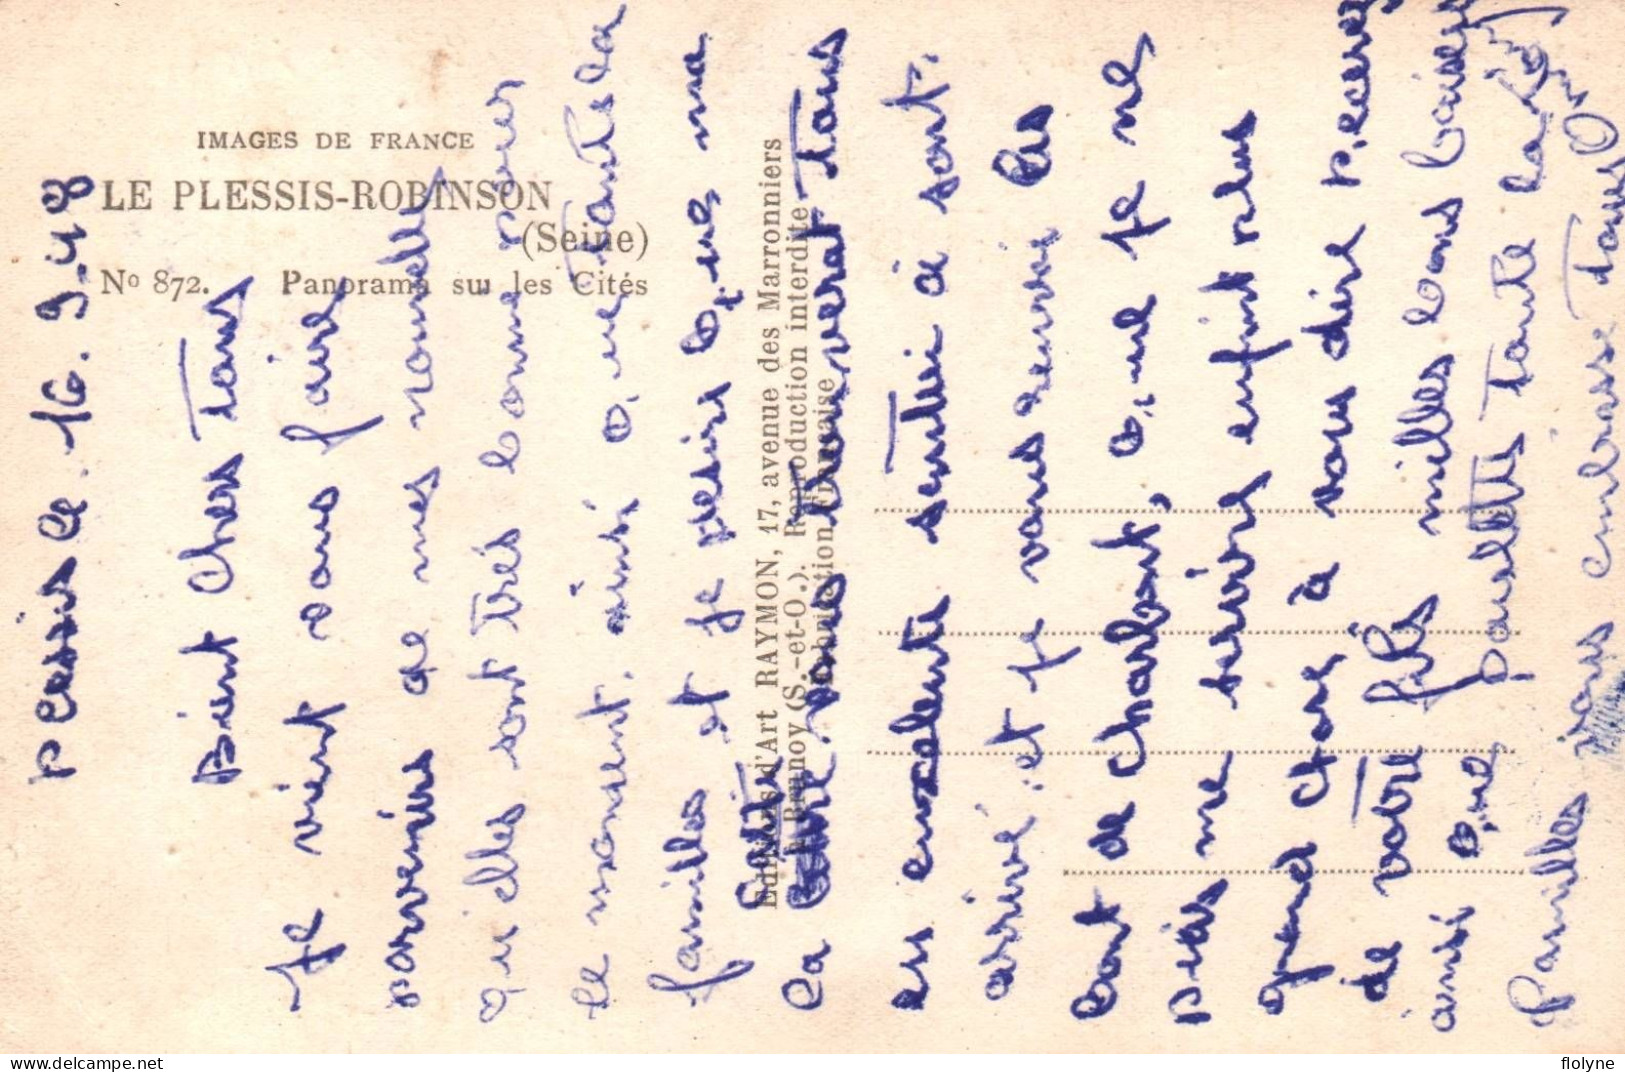 IMAGES DE FRANCE
LE PLESSIS-ROBINSON
(Seine)
No 872. Panorama sur les Cités
Editions d'Art RAYMON, 17, avenue des Marronniers
Brunoy (S.-et-O.). Reproduction interdite
Fabrication Française
plessis le. 16. 9. 48
Bient Chers Tous
Je vient vous faire
parvenirs de mes nouvelle
qui elles sont très bonne pour
le moment. ainsi que Tante la
familles et je pense que ma
la vous trouverat tous
en excelente sentée à sont.
arrivé. et je vous renvoi les
bont de charbont, que je ne
puis me servire enfint plus
grand chose à vous dire recevez
de votre fils milles bons baisers
ainsi que paulette tante
familles vous embrasse Tous
flolyne